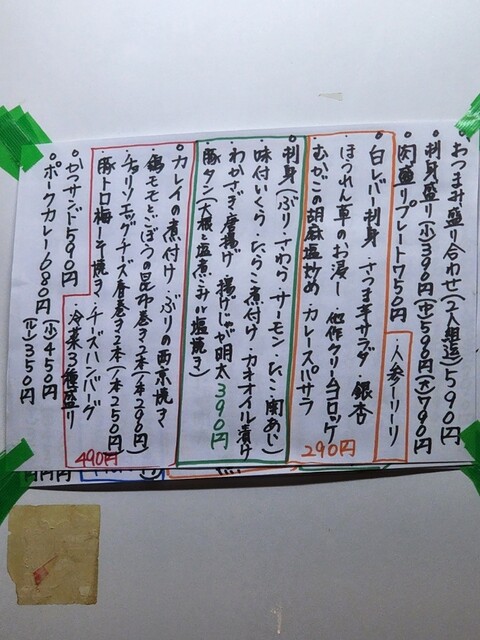 おつまみ盛り合わせ(2人組迄)590円
刺身盛り(小)390円(中)590円(大)790円
肉盛りプレート750円
・人参しりしり
白レバー刺身・さつま芋サラダ 銀杏
ほうれん草のお浸し・
クリームコロッケ
むかごの胡麻塩炒め カレースパサラ
290円
刺身(ぶり さわら サーモン・たこ 関あじ)
味付いくら・たら煮付け・カキオイル漬け
わかさぎ唐揚げ・揚げじゃが明太
390円
豚タン(大根と塩煮こみ ル 塩焼き)
カレイの煮付け・ぶりの西京焼き
鶏モモとごぼうの昆布巻き2本(1本290円)
チョリソエッグチーズ春巻き2本(1本250円)
豚トロ梅しそ焼き・チーズハンバーグ
・冷菜3種盛り
490円
かつサンド590円
ポークカレー680円(小)450円
(ルー)350円
円円円